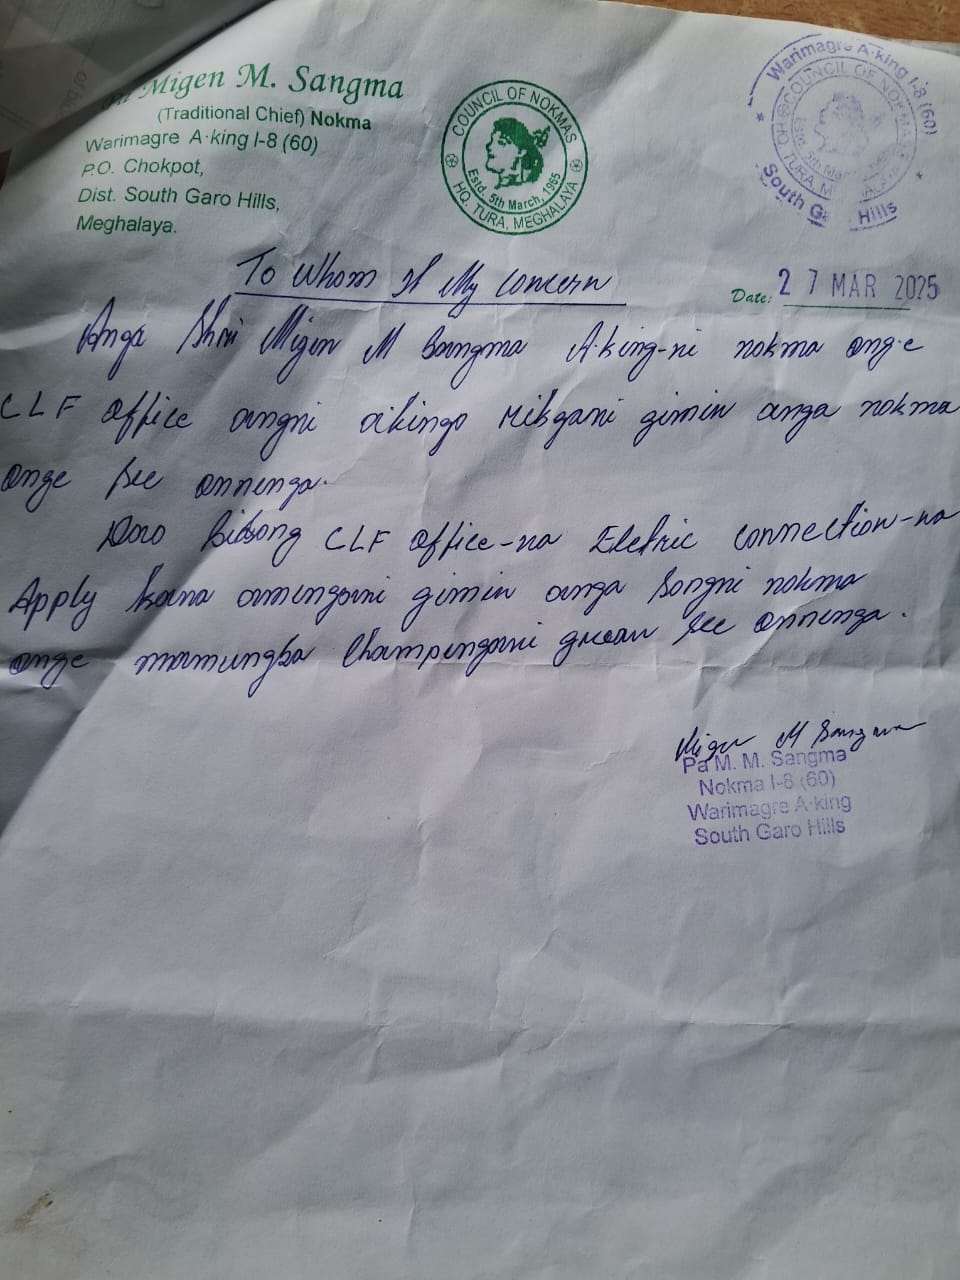 Migen M. Sangma
(Traditional Chief) Nokma
Warimagre A·king I-8 (60)
P.O. Chokpot,
Dist. South Garo Hills,
Meghalaya.
COUNCIL OF NOKMAS
Estd. 5th March, 1965
HQ. TURA, MEGHALAYA
Warimagre A·king I-8 (60)
COUNCIL OF NOKMAS
South Hills
To Whom It My Concern
Date: 27 MAR 2025
Anga Shri Migen M Sangma A·king-ni nokma ong·e
CLF office angni a·kingo rikgani gimin anga nokma
onge see onnenga.
Daro Bibsong CLF office-na Eletric connection-na
Apply kana amingani gimin anga Songni nokma
onge mamungba champengani gri·an see onnenga.
Migen M Sangma
Pa M. M. Sangma
Nokma I-8 (60)
Warimagre A·king
South Garo Hills